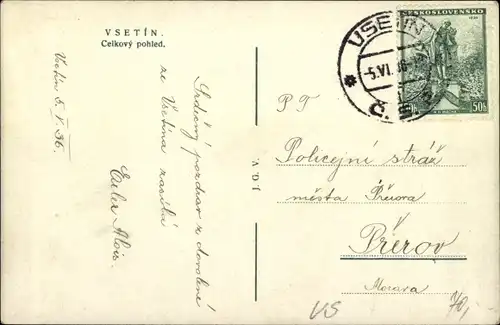 VSETÍN.
Celkový pohled.
Vsetín 5. V. 36.
Srdečný pozdrav z dovolené
ze Vsetína zasílá
Alois.
J.Q.V.
P T
Policejní stráž
města Přerova
Přerov
Morava
ČESKOSLOVENSKO
50h
VSETÍN
-5.VI.
VS
70,-